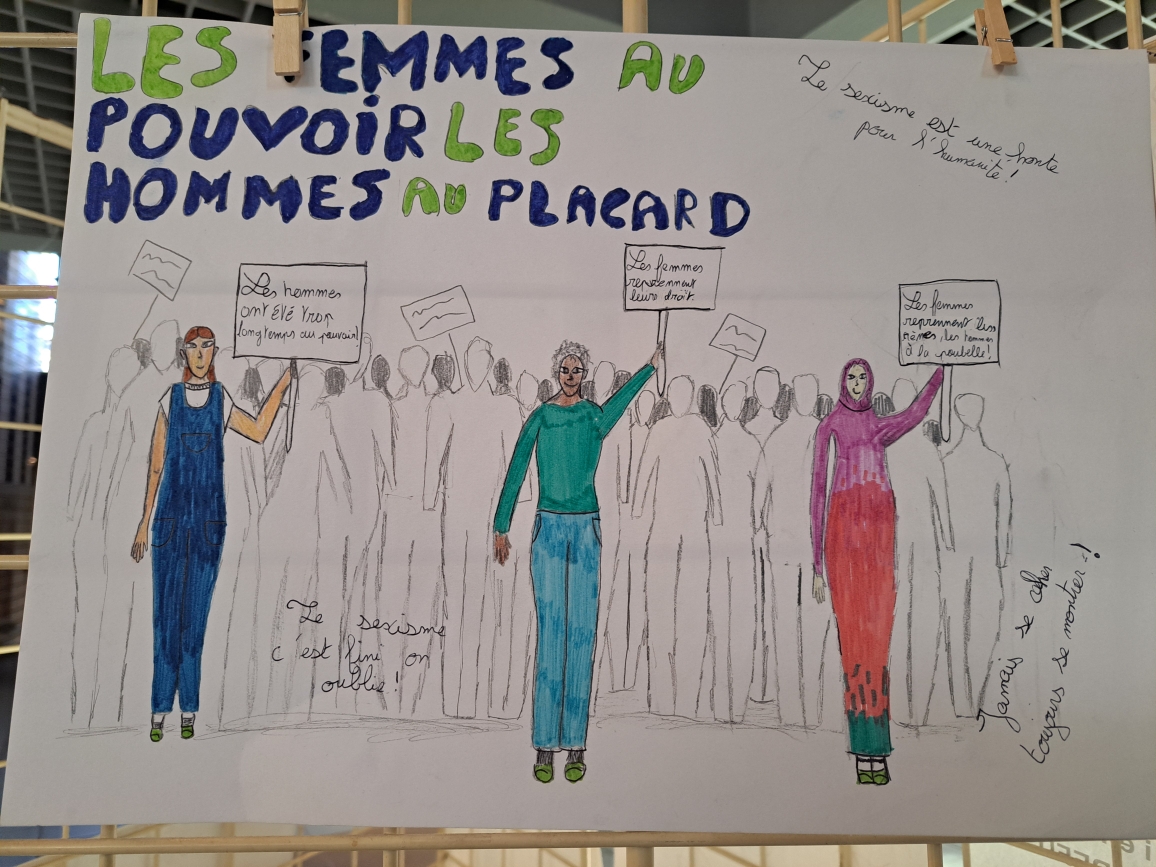 LES FEMMES AU
POUVOIR LES
HOMMES AU PLACARD
Le sexisme est une honte
pour l'humanité!
Les hommes
ont été trop
longtemps au pouvoir!
Les femmes
reprennent
leurs droit.
Les femmes
reprennent les
rênes, les hommes
à la poubelle!
Le sexisme
c'est fini on
oublie!
Jamais se cacher
toujours se montrer!